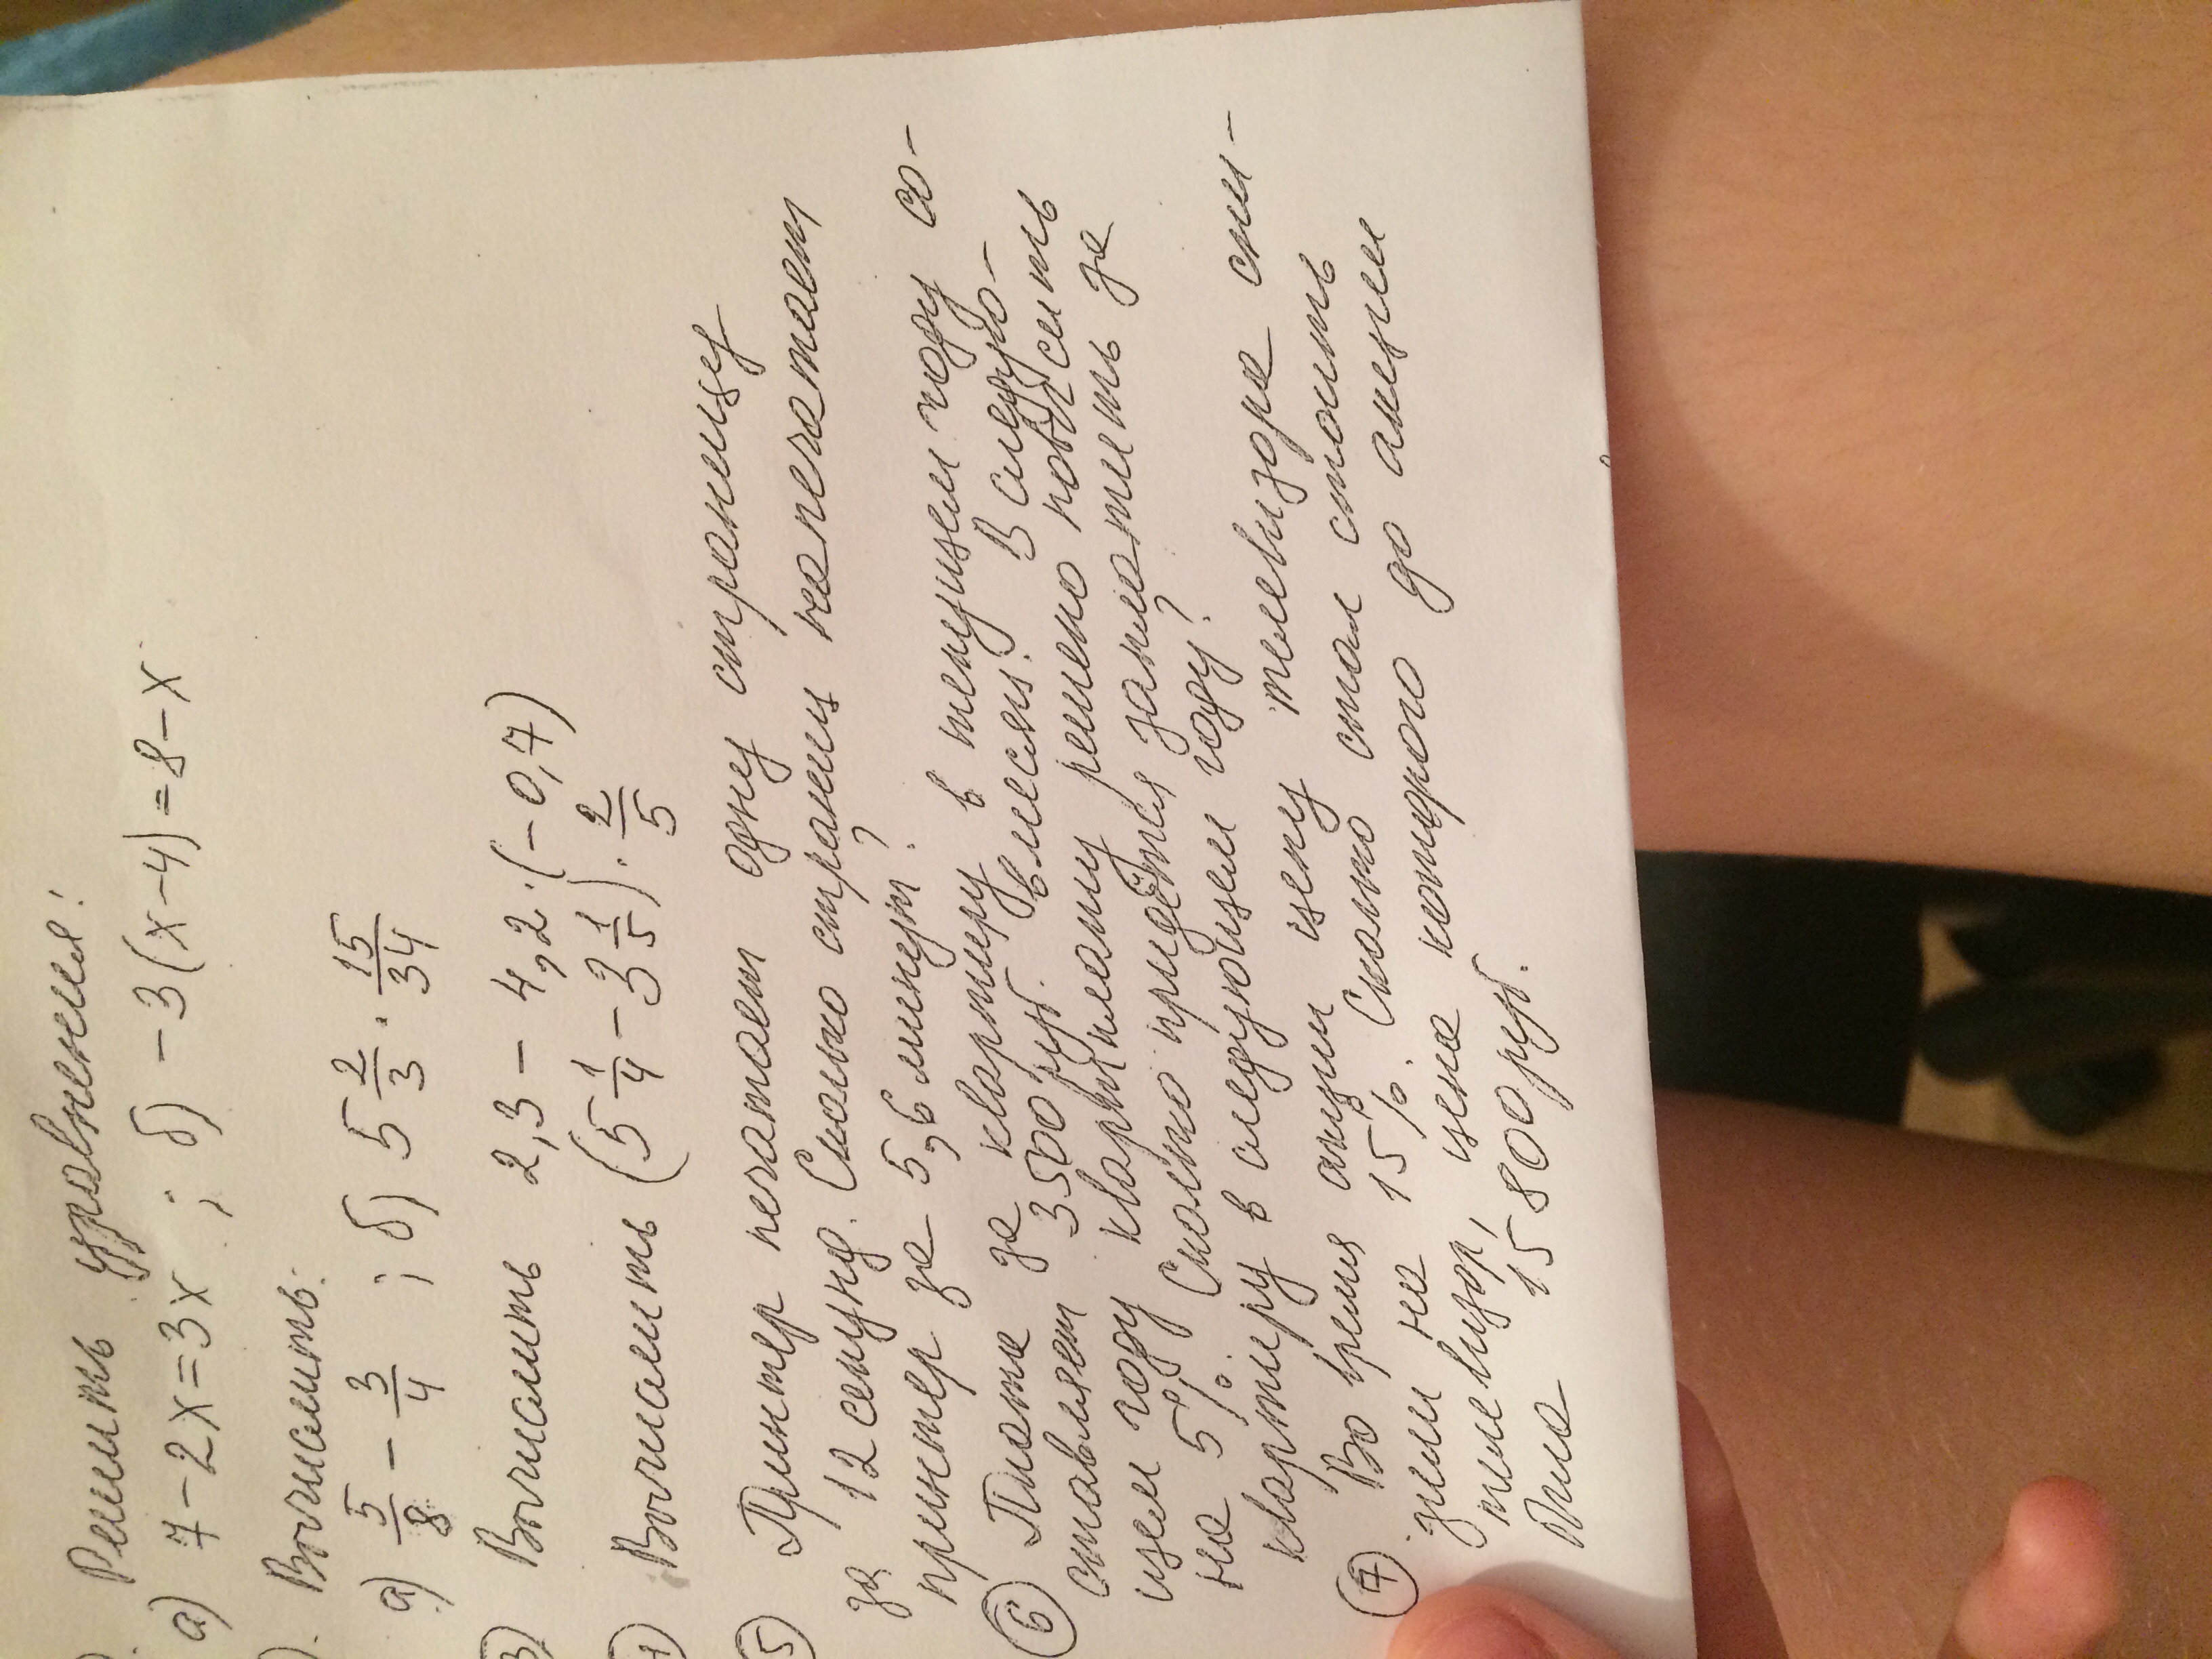 Решить уравнения:
а) 7 - 2x = 3x ; б) - 3(x - 4) = 8 - x
Вычислить:
а) 5/8 - 3/4 ; б) 5 2/3 · 15/34
3) Вычислить 2,3 - 4,2 · (- 0,7)
Вычислить (5 1/4 - 3 1/5) · 2/5
5) Принтер печатает одну страницу
за 12 секунд. Сколько страниц напечатает
принтер за 5,6 минут?
6) Плата за квартиру в текущем году со-
ставляет 3500 руб. в месяц. В следую-
щем году квартплату решено повысить
на 5%. Сколько придётся заплатить за
квартиру в следующем году?
7) Во время акции цену телевизора сни-
зили на 15%. Сколько стал стоить
телевизор, цена которого до акции
была 15 800 руб.